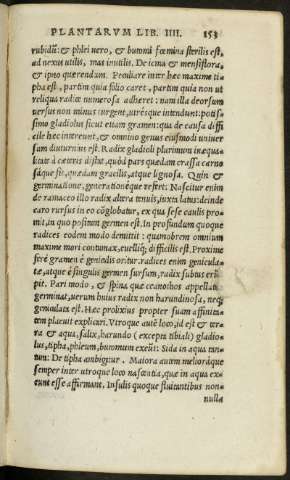 PLANTARVM LIB. IIII. 153
rubidũ: & phlei vero, & butomi fœmina sterilis est,
ad nexus utilis, mas inutilis. De icma & mensiflora,
& ipno quærendum. Peculiare inter hec maxime ti-
pha est, partim quia folio caret, partim quia non ut
reliqua radice numerosa adheret: nam illa deorsum
versus non minus urgent, viresque intendunt: potis-
simo gladiolus sicut etiam gramen: qua de causa diffi
cile hec intereunt, & omnino genus eiusmodi univer
sam diuturnius est. Radix gladioli plurimum inæqua-
litate à cæteris distat, quòd pars quædam crassa carno
sáque sit, quædam gracilis, atque lignosa. Quin &
germinatione, generationéque refert: Nascitur enim
de ramaceo illo radix altera tenuis, iuxta latus: deinde
caro rursus in eo cõglobatur, ex qua sese caulis pro-
mit, in quo positum germen est. In profundum quoque
radices eodem modo demittit: quamobrem omnium
maxime mori contumax, euellíq; difficilis est. Proxime
feré gramen è geniculis oritur. radices enim genicula-
tæ, atque è singulis germen sursum, radix subtus erũ
pit. Pari modo, & spina que ceanothos appellatur,
germinat, verum huius radix non harundinosa, neq;
geniculata est. Hec prolixius propter suam affinita-
tem placuit explicari. Vtroque autẽ loco, id est & ter-
ra & aqua, salix, harundo (excepta tibiali) gladio-
lus, tipha, phleum, butomum exeũt: Sida in aqua tan-
tum: De tipha ambigitur. Maiora autem melioráque
semper inter utroque loco nascentia, quæ in aqua ex-
eunt esse affirmant. Insulis quoque fluitantibus non-
nulla